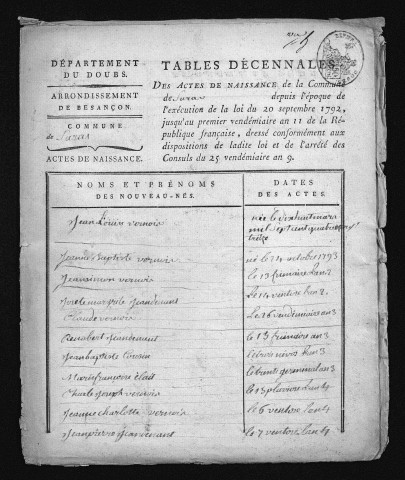 DÉPARTEMENT
DU DOUBS.
ARRONDISSEMENT
DE BESANÇON.
COMMUNE
de
ACTES DE NAISSANCE.
TABLES DÉCENNALES
DES ACTES DE NAISSANCE de la Commune
de depuis l'époque de
l'exécution de la loi du 20 septembre 1792,
jusqu'au premier vendémiaire an 11 de la Ré-
publique française, dressé conformément aux
dispositions de ladite loi et de l'arrêté des
Consuls du 25 vendémiaire an 9.
NOMS ET PRÉNOMS
DES NOUVEAU-NÉS.
DATES
DES ACTES.
Jean Louis vernois
née le dixhuit mars
mil sept cent quatrevingt
treize
Jeanne Baptiste vernois
né le 24 octobre 1793
Jeansimon vernois
le 13 frimaire lan 2
Jeandenant
le 14 ventose lan 2
Claude vernois
le 26 vendemaire an 3
Jeandenant
le 13 frimaire an 3
Jeanbaptiste
nivose lan 3
Marie françoise
le trente germinal an 3
Charle Joseph vernois
le 13 pluviose lan 4
Jeanne charlotte vernois
le 6 ventose lan 4
Jeanpierre Jeandenant
le 7 ventose lan 4